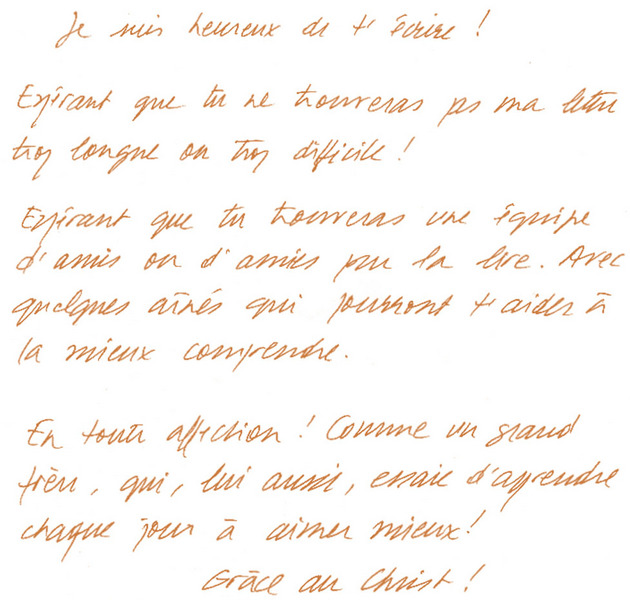 Je suis heureux de t'écrire !
Espérant que tu ne trouveras pas ma lettre
trop longue ou trop difficile !
Espérant que tu trouveras une équipe
d'amis ou d'amies pour la lire. Avec
quelques aînés qui pourront t'aider à
la mieux comprendre.
En toute affection ! Comme un grand
frère, qui, lui aussi, essaie d'apprendre
chaque jour à aimer mieux !
Grâce au Christ !